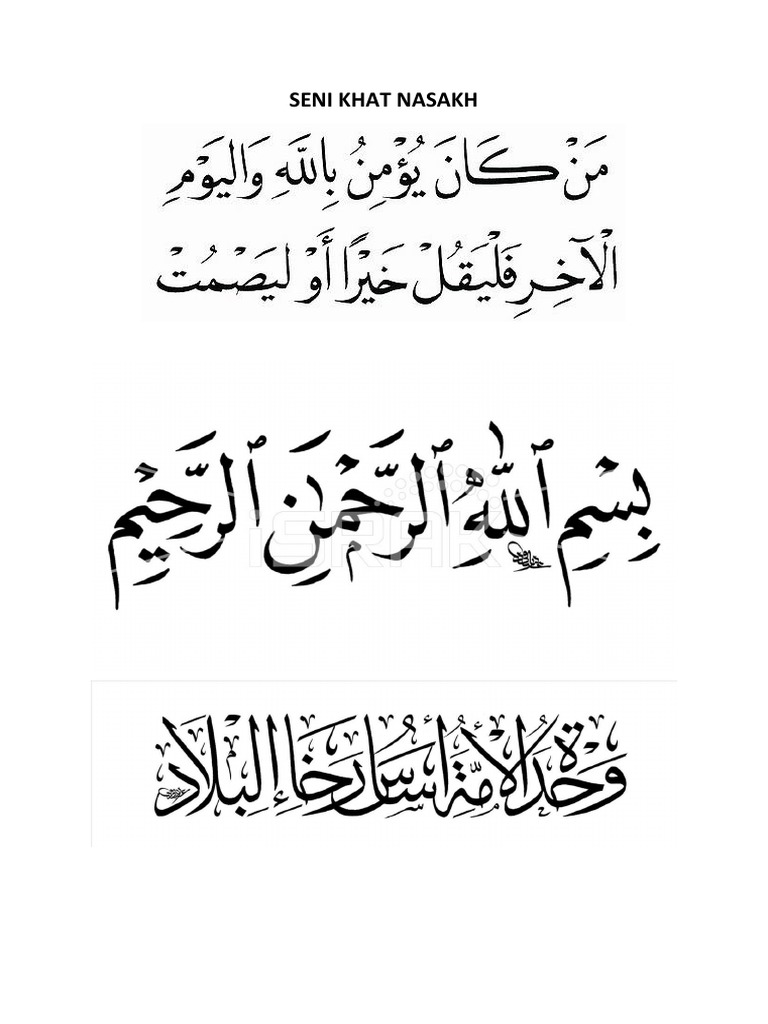 SENI KHAT NASAKH
مَنْ كَانَ يُؤْمِنُ بِاللَّهِ وَاليَوْمِ
الْآخِرِ فَلْيَقُلْ خَيْرًا أَوْ ليَصْمُتْ
بِسْمِ ٱللَّهِ ٱلرَّحْمٰنِ ٱلرَّحِيْمِ
وَحْدَةُ الأُمَّةِ أَسَاسُ رَخَاءِ الْبِلَادِ